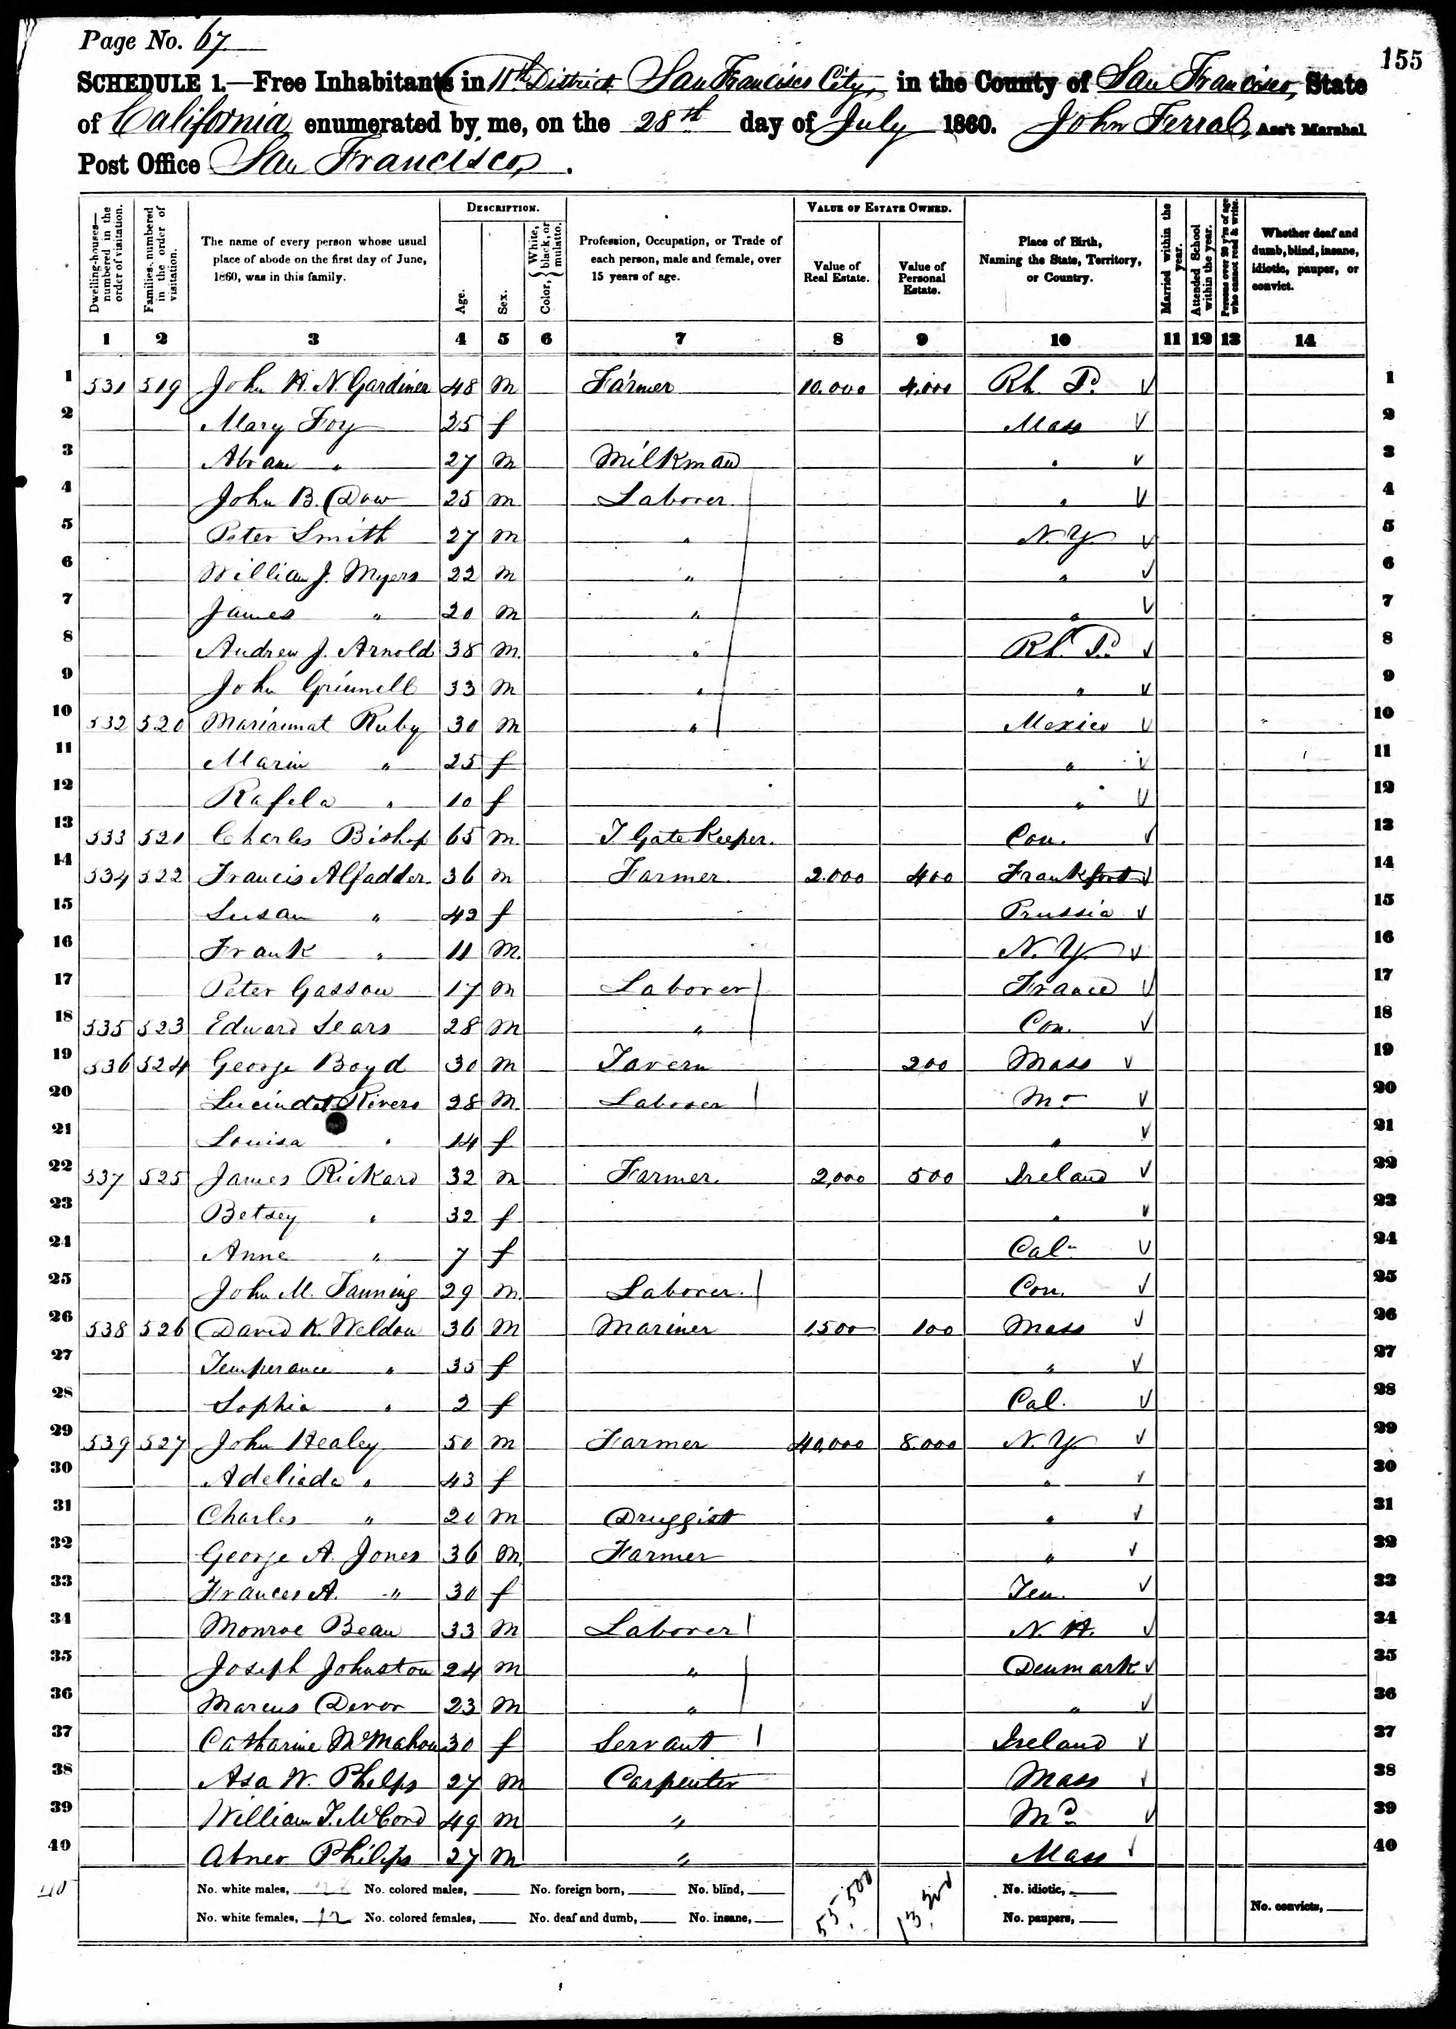 Page No. 67
155
SCHEDULE 1.—Free Inhabitants in 11th District San Francisco City, in the County of San Francisco, State
of California, enumerated by me, on the 28th day of July 1860. John Ferral, Ass't Marshal
Post Office San Francisco, .
Dwelling-houses—numbered in the order of visitation.
Families, numbered in the order of visitation.
The name of every person whose usual place of abode on the first day of June, 1860, was in this family.
DESCRIPTION.
Age.
Sex.
Color, { White, black, or mulatto.
Profession, Occupation, or Trade of each person, male and female, over 15 years of age.
VALUE OF ESTATE OWNED.
Value of Real Estate.
Value of Personal Estate.
Place of Birth, Naming the State, Territory, or Country.
Married within the year.
Attended School within the year.
Persons over 20 y'rs of age who cannot read & write.
Whether deaf and dumb, blind, insane, idiotic, pauper, or convict.
1 2 3 4 5 6 7 8 9 10 11 12 13 14
1 531 519 John H. N. Gardiner 48 m Farmer 10.000 4.000 Rh. I. 1
2 Mary Foy 25 f Mass 2
3 Abram " 27 m Milkman " 3
4 John B. Dow 25 m Laborer " 4
5 Peter Smith 27 m " N.Y 5
6 William J. Myers 22 m " " 6
7 James " 20 m " " 7
8 Andrew J. Arnold 38 m " Rh. I. 8
9 John Grinnell 33 m " " 9
10 532 520 Ruby 30 m " Mexico 10
11 Maria " 25 f " 11
12 Rafela " 10 f " 12
13 533 521 Charles Bishop 65 m T Gate Keeper. Con. 13
14 534 522 Francis 36 m Farmer. 2.000 400 Frankfort 14
15 Susan " 42 f Prussia 15
16 Frank " 11 m N.Y. 16
17 Peter Gassow 17 m Laborer France 17
18 535 523 Edward Sears 28 m " Con. 18
19 536 524 George Boyd 30 m Tavern 200 Mass 19
20 Rivers 28 m Laborer 20
21 Louisa " 14 f " 21
22 537 525 James Rickard 32 m Farmer. 2,000 500 Ireland 22
23 Betsey " 32 f " 23
24 Anne " 7 f Cal 24
25 John M. Fanning 29 m Laborer. Con. 25
26 538 526 David K. Weldon 36 m Mariner 1500 100 Mass 26
27 Temperance " 35 f " 27
28 Sophia " 2 f Cal. 28
29 539 527 John Healey 50 m Farmer 40,000 8.000 N.Y 29
30 Adeliade " 43 f " 30
31 Charles " 20 m Druggist " 31
32 George A. Jones 36 m Farmer " 32
33 Frances A. " 30 f Ten. 33
34 Monroe Bean 33 m Laborer N. H. 34
35 Joseph Johnston 24 m " Denmark 35
36 Marcus Devor 23 m " " 36
37 Catharine McMahon 30 f Servant Ireland 37
38 Asa W. Phelps 27 m Carpenter Mass 38
39 William T. McCord 49 m " Md 39
40 Abner Philips 27 m " Mass 40
40 No. white males, 28 No. colored males, No. foreign born, No. blind, 55,500 13,200 No. idiotic,
No. white females, 12 No. colored females, No. deaf and dumb, No. insane, No. paupers, No. convicts,